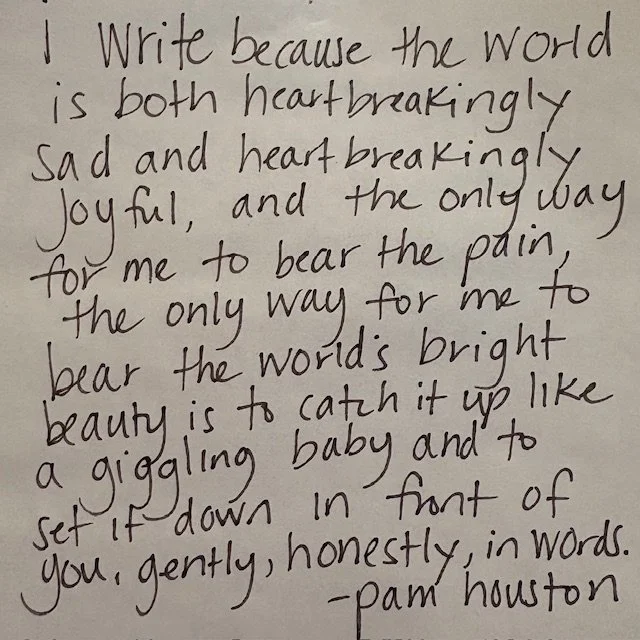 I Write because the World
is both heartbreakingly
sad and heartbreakingly
Joyful, and the only way
for me to bear the pain,
the only way for me to
bear the world's bright
beauty is to catch it up like
a giggling baby and to
set it down in front of
you, gently, honestly, in words.
-pam houston